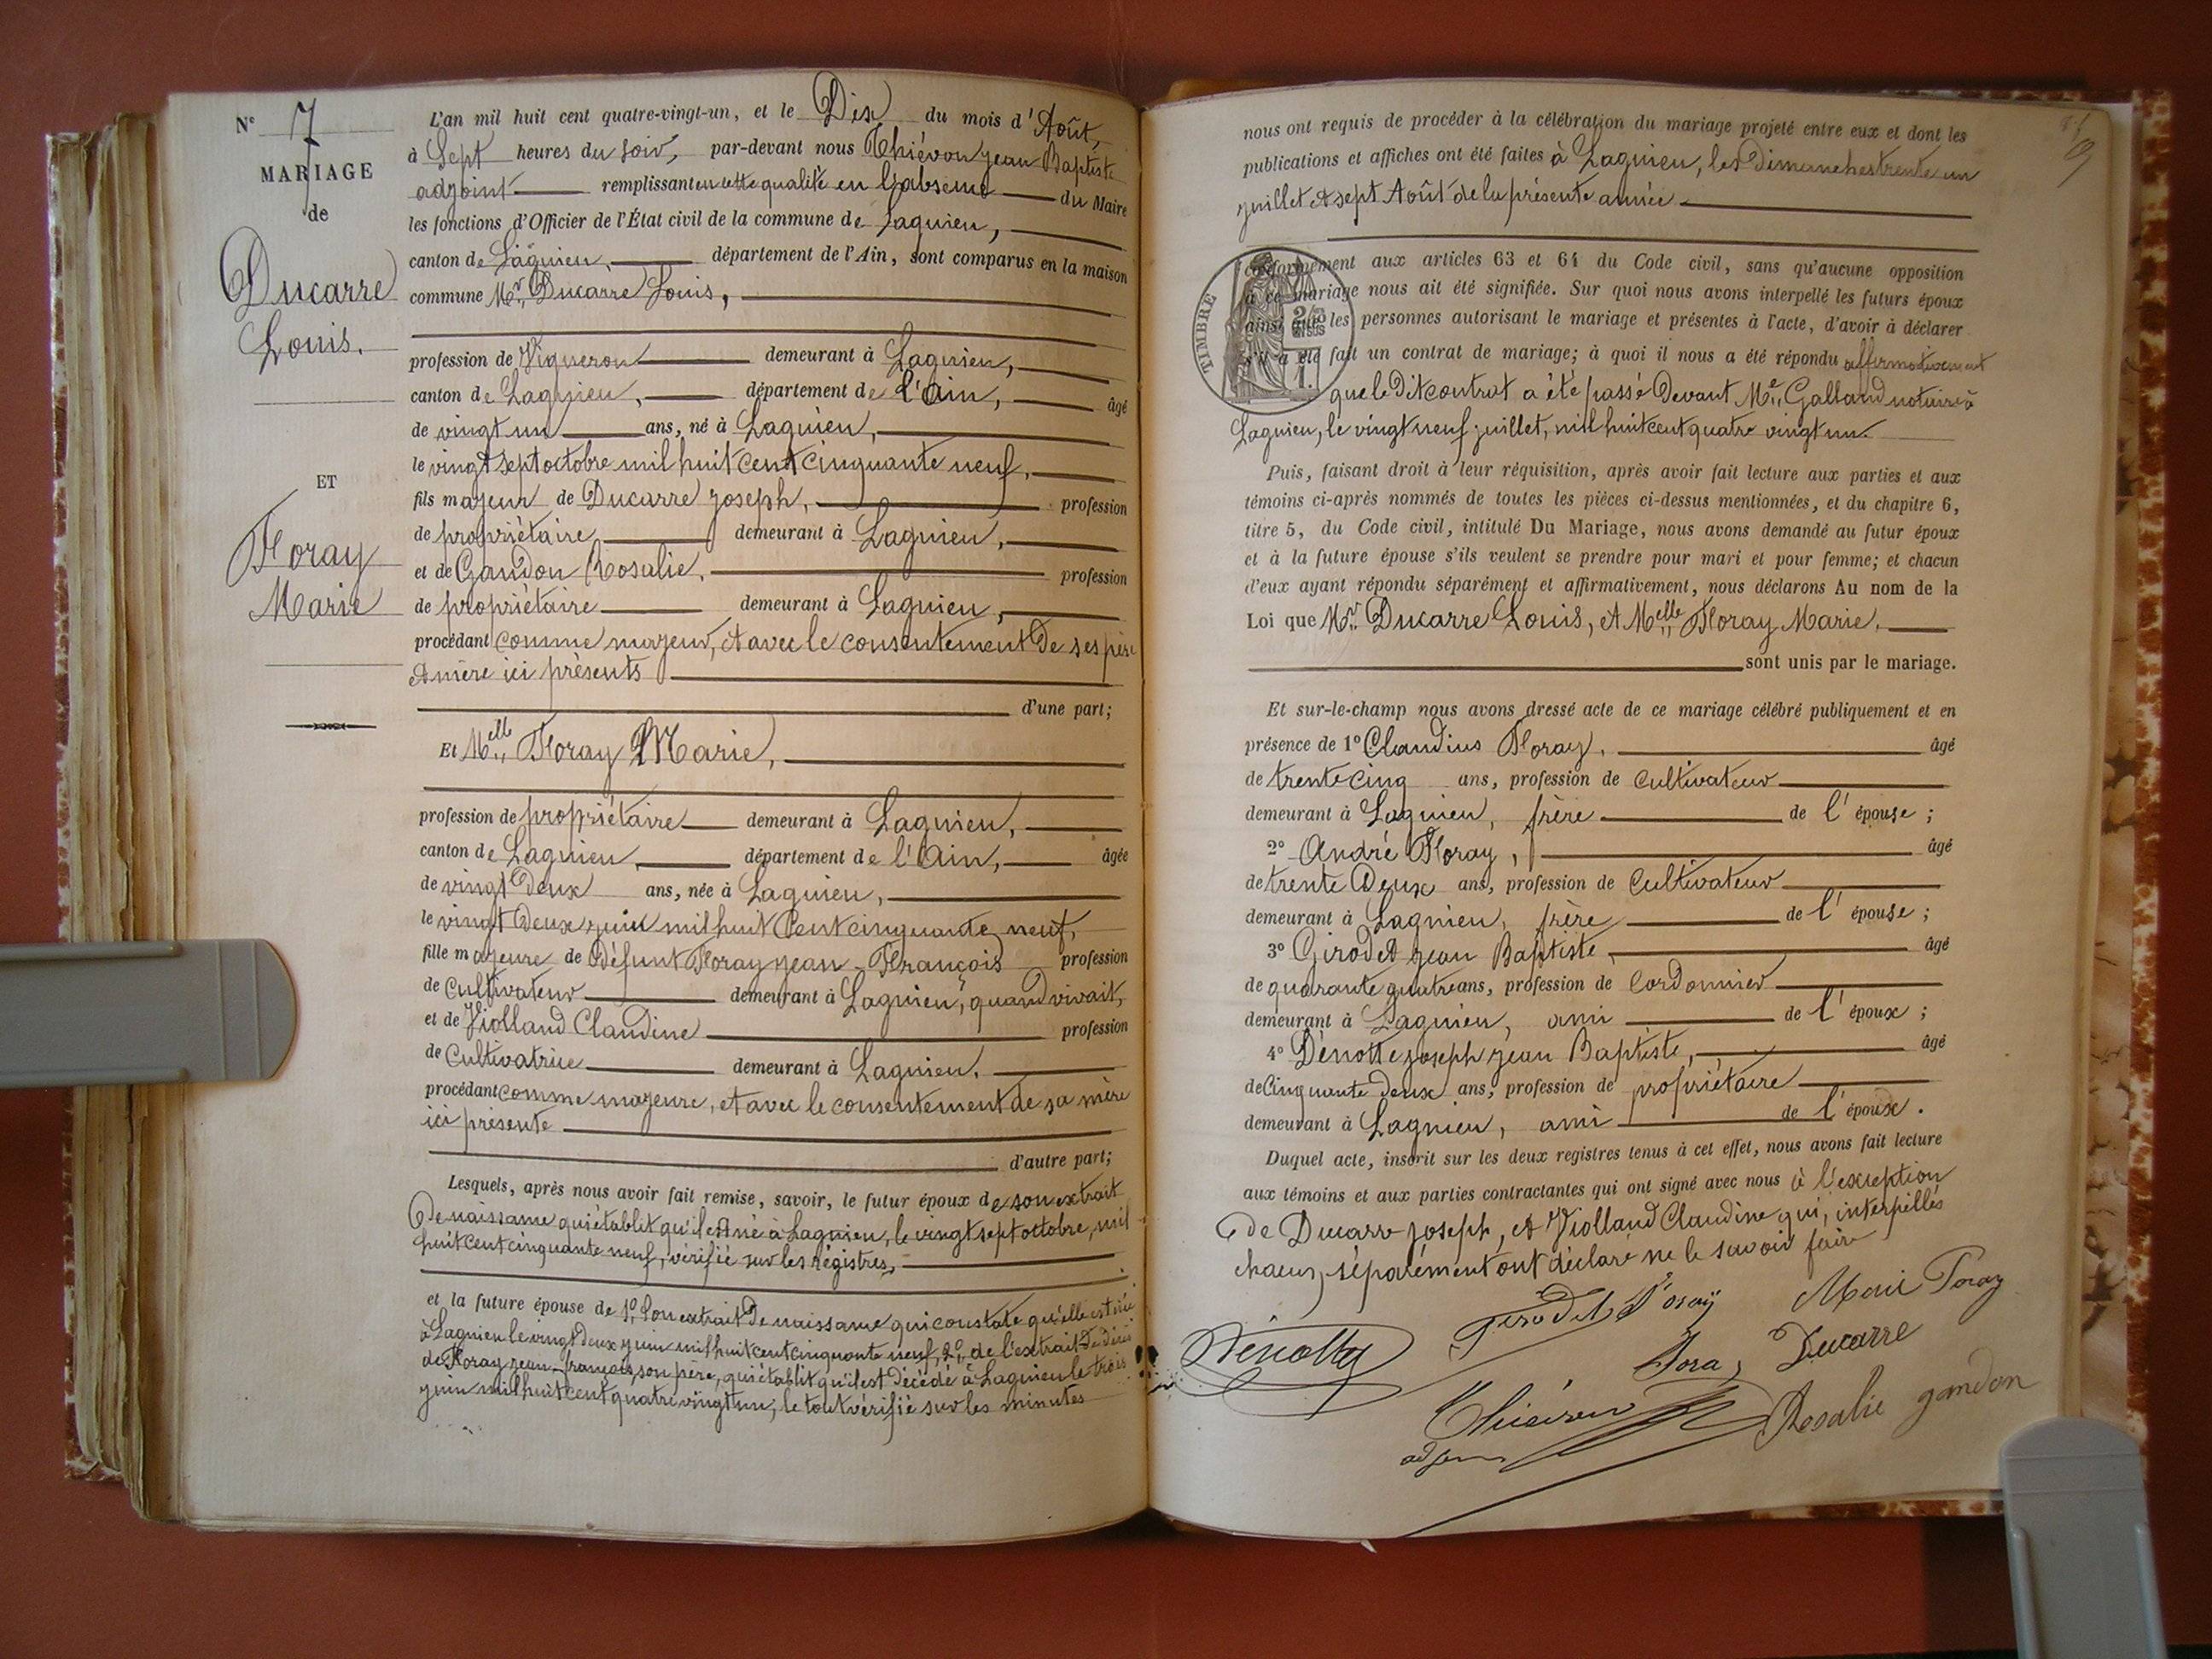 N° 7
MARIAGE
de
Ducarre
Louis.
ET
Floray
Marie
L'an mil huit cent quatre-vingt-un, et le Dix du mois d'Août,
à Sept heures du soir, par-devant nous Thiévon Jean Baptiste
adjoint remplissant en cette qualité en l'absence du Maire
les fonctions d'Officier de l'État civil de la commune de Lagnieu,
canton de Lagnieu, département de l'Ain, sont comparus en la maison
commune Mr. Ducarre Louis,
profession de Vigneron demeurant à Lagnieu,
canton de Lagnieu, département de l'Ain, âgé
de vingt un ans, né à Lagnieu,
le vingt sept octobre mil huit cent cinquante neuf,
fils majeur de Ducarre Joseph, profession
de propriétaire demeurant à Lagnieu,
et de Gandon Rosalie, profession
de propriétaire demeurant à Lagnieu,
procédant comme majeur, et avec le consentement de ses père
et mère ici présents
d'une part;
Et Melle Floray Marie,
profession de propriétaire demeurant à Lagnieu,
canton de Lagnieu, département de l'Ain, âgée
de vingt deux ans, née à Lagnieu,
le vingt deux juin mil huit cent cinquante neuf,
fille majeure de Défunt Floray Jean-François profession
de Cultivateur demeurant à Lagnieu, quand vivait,
et de Violland Claudine profession
de Cultivatrice demeurant à Lagnieu.
procédant comme majeure, et avec le consentement de sa mère
ici présente
d'autre part;
Lesquels, après nous avoir fait remise, savoir, le futur époux de son extrait
De naissance qui établit qu'il est né à Lagnieu, le vingt sept octobre, mil
huit cent cinquante neuf, vérifié sur les régistres,
et la future épouse de 1° Son extrait De naissance qui constate qu'elle est née
à Lagnieu le vingt deux juin mil huit cent cinquante neuf, 2° de l'extrait De décès
de Floray Jean-françois, son père, qui établit qu'il est décédé à Lagnieu le trois
juin mil huit cent quatre vingt un, le tout vérifié sur les minutes
nous ont requis de procéder à la célébration du mariage projeté entre eux et dont les
publications et affiches ont été faites à Lagnieu, les Dimanches trente un
juillet et sept Août de la présente année
TIMBRE
conformément aux articles 63 et 64 du Code civil, sans qu'aucune opposition
à ce mariage nous ait été signifiée. Sur quoi nous avons interpellé les futurs époux
ainsi que les personnes autorisant le mariage et présentes à l'acte, d'avoir à déclarer
s'il a été fait un contrat de mariage; à quoi il nous a été répondu affirmativement
que le Dit contrat a été passé Devant Me. Galland notaire à
Lagnieu, le vingt neuf juillet, mil huit cent quatre vingt un.
Puis, faisant droit à leur réquisition, après avoir fait lecture aux parties et aux
témoins ci-après nommés de toutes les pièces ci-dessus mentionnées, et du chapitre 6,
titre 5, du Code civil, intitulé Du Mariage, nous avons demandé au futur époux
et à la future épouse s'ils veulent se prendre pour mari et pour femme; et chacun
d'eux ayant répondu séparément et affirmativement, nous déclarons Au nom de la
Loi que Mr. Ducarre Louis, et Melle Floray Marie,
sont unis par le mariage.
Et sur-le-champ nous avons dressé acte de ce mariage célébré publiquement et en
présence de 1° Claudius Floray, âgé
de trente cinq ans, profession de Cultivateur
demeurant à Lagnieu, frère de l'épouse;
2° André Floray, âgé
de trente Deux ans, profession de Cultivateur
demeurant à Lagnieu, frère de l'épouse;
3° Girodet Jean Baptiste, âgé
de quarante quatre ans, profession de Cordonnier
demeurant à Lagnieu, ami de l'époux;
4° Dénotte Joseph Jean Baptiste, âgé
de Cinquante deux ans, profession de propriétaire
demeurant à Lagnieu, ami de l'époux.
Duquel acte, inscrit sur les deux registres tenus à cet effet, nous avons fait lecture
aux témoins et aux parties contractantes qui ont signé avec nous à l'exception
de Ducarre Joseph, et Violland Claudine qui, interpellés
chacun séparément ont déclaré ne le savoir faire
Girodet Foray Marie Foray
Dénotte Fora Ducarre
Thiévon Rosalie gandon
adjoint